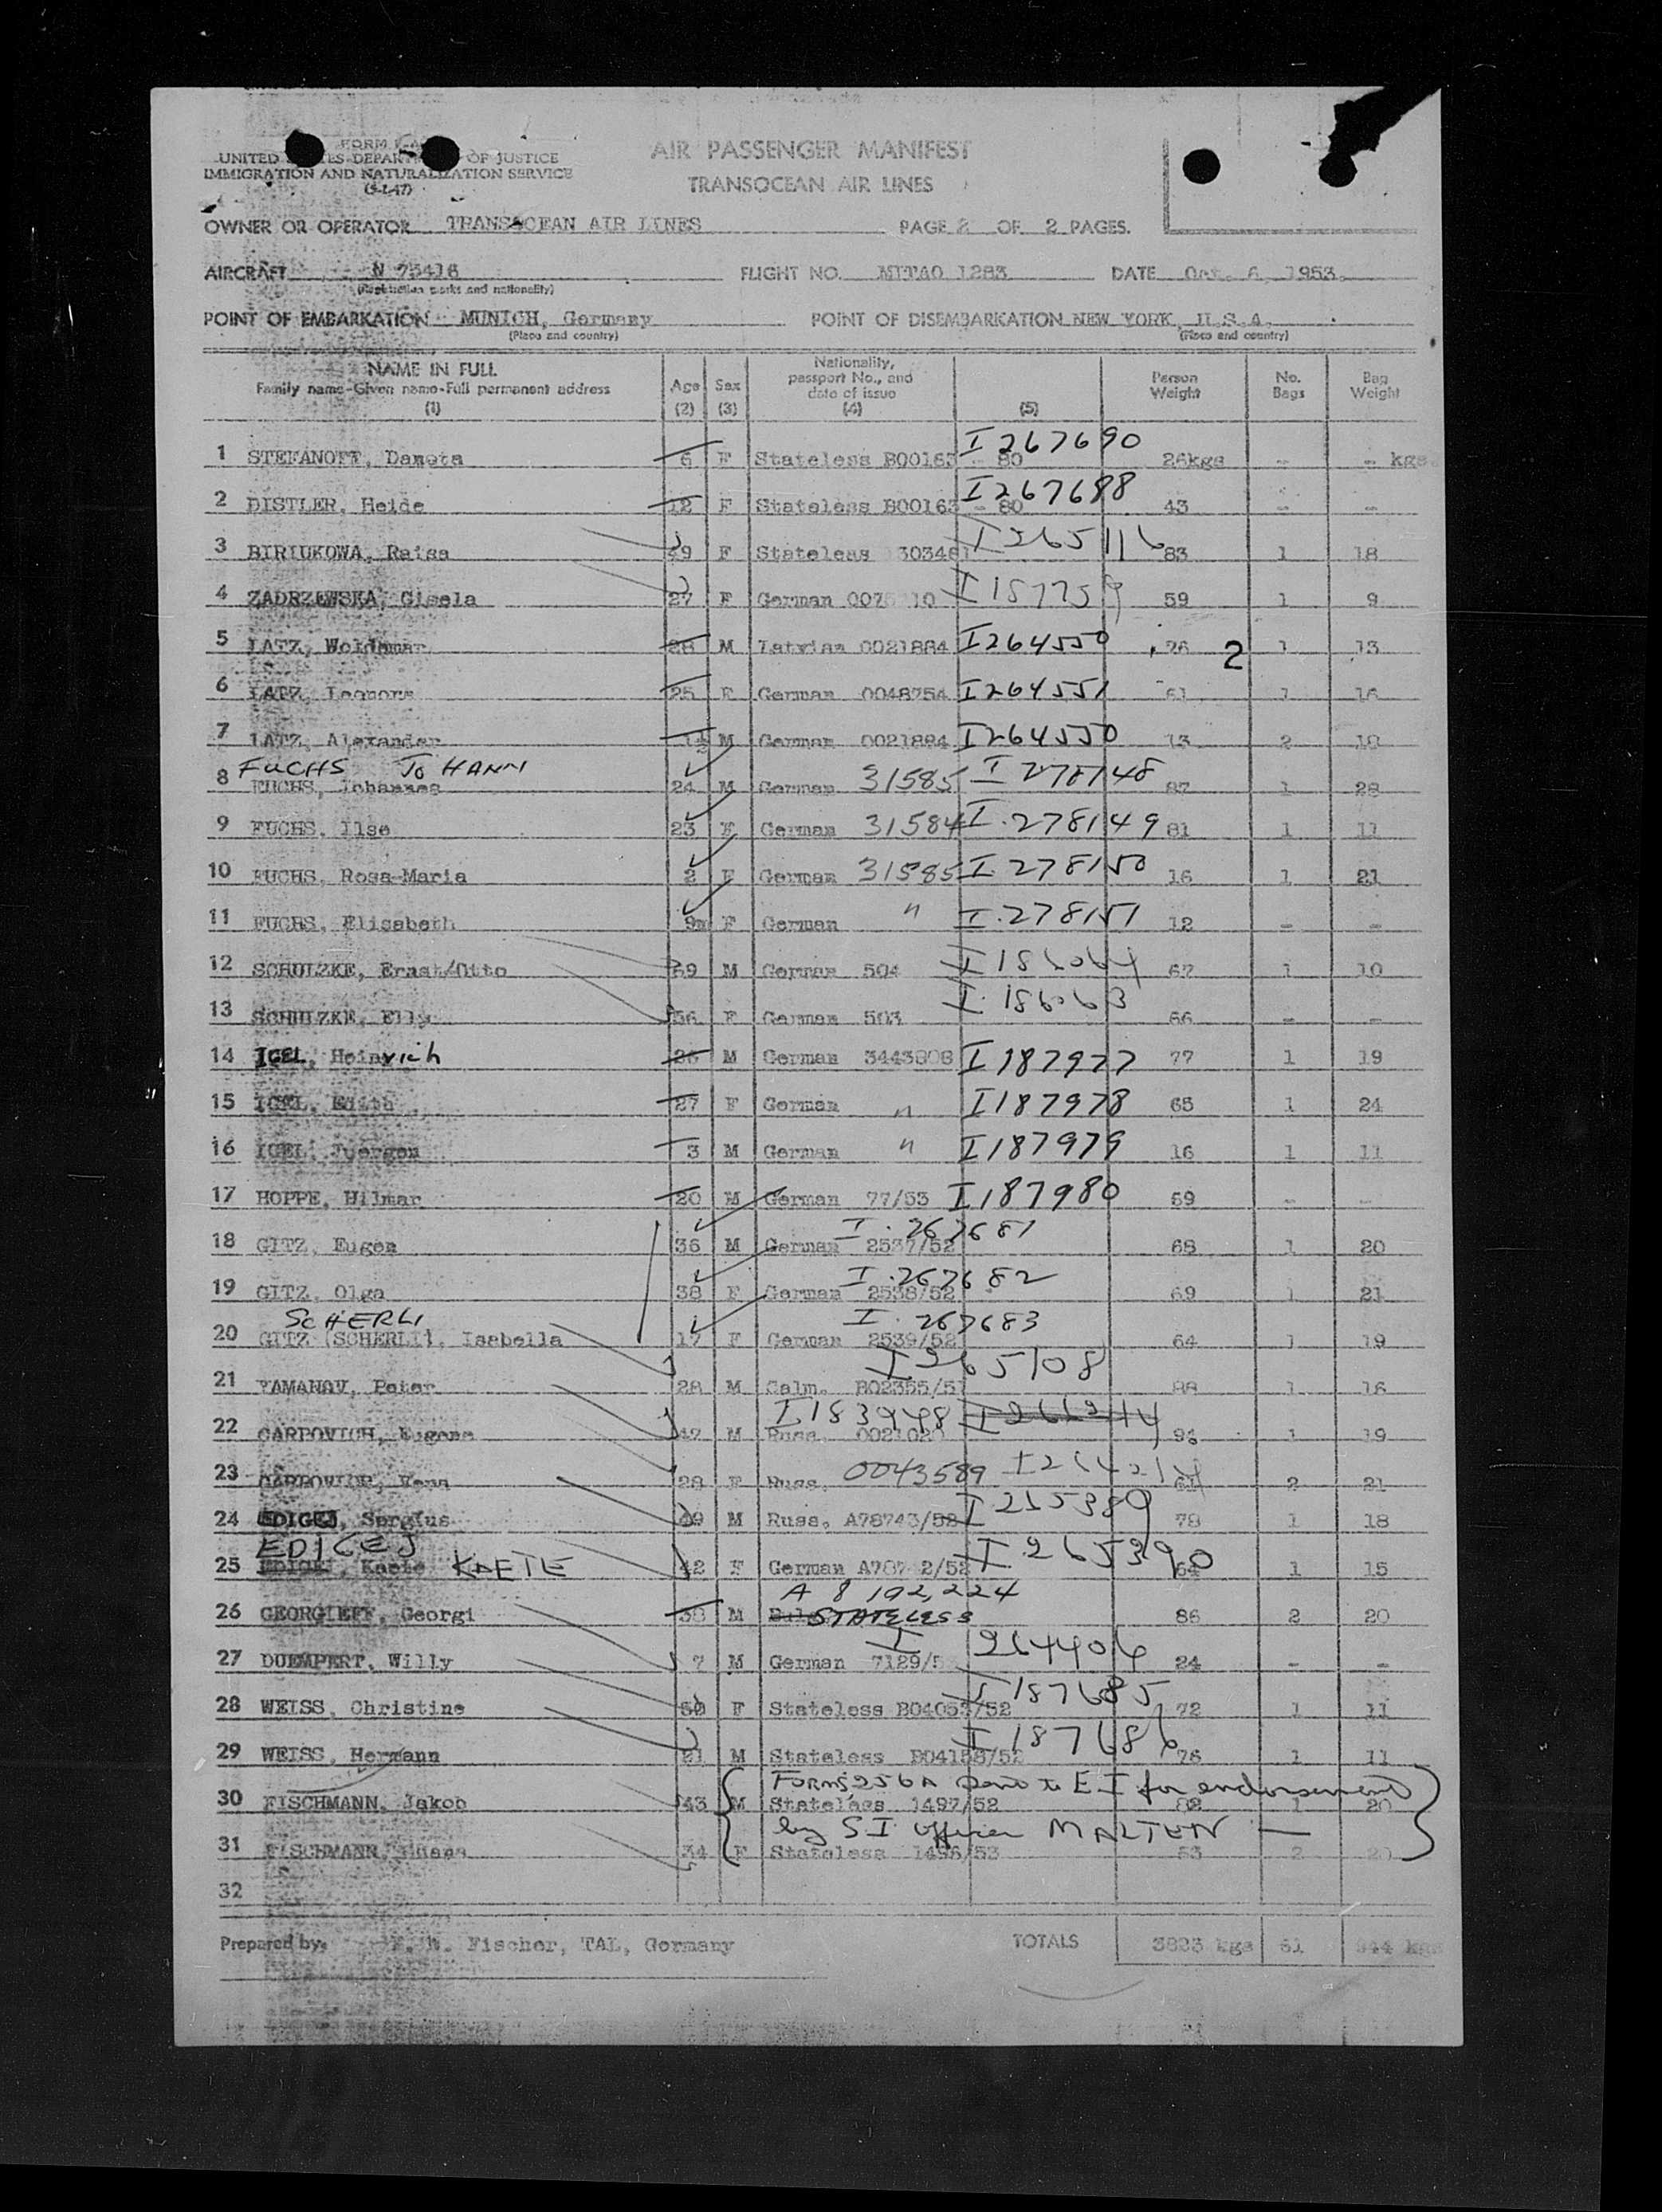 UNITED OF JUSTICE
IMMIGRATION AND NATURALIZATION SERVICE
AIR PASSENGER MANIFEST
TRANSOCEAN AIR LINES
OWNER OR OPERATOR TRANSOCEAN AIR LINES PAGE 2 OF 2 PAGES.
AIRCRAFT N 75416 FLIGHT NO. MITAO 1283 DATE Oct. 6, 1953.
(Registration marks and nationality)
POINT OF EMBARKATION MUNICH, Germany POINT OF DISEMBARKATION NEW YORK, U.S.A.
(Place and country) (Place and country)
NAME IN FULL Age Sex Nationality, passport No., and date of issue Person Weight No. Bags Bag Weight
Family name-Given name-Full permanent address
(1) (2) (3) (4) (5)
1 STEFANOFF, Daneta 6 F Stateless B00163 - 80 I 267690 26kgs - - kgs
2 DISTLER, Heide 12 F Stateless B00163 - 80 I 267688 43 - -
3 BIRIUKOWA, Raisa 49 F Stateless I 265116 83 1 18
4 ZADRZEWSKA, Gisela 27 F German I 187759 59 1 9
5 LATZ, Woldemar 28 M Latvian 0021884 I 264550 76 2 1 13
6 LATZ, Leonore 25 F German 0048754 I 264551 61 1 16
7 LATZ, Alexander M German 0021884 I 264550 13 2 18
FUCHS JOHANN
8 FUCHS, Johannes 24 M German 31585 I 278148 87 1 28
9 FUCHS, Ilse 23 F German 31584 I. 278149 81 1 11
10 FUCHS, Rosa-Maria 2 F German 31585 I. 278150 16 1 21
11 FUCHS, Elisabeth 9m F German " I. 278151 12 - -
12 SCHULZKE, Ernst/Otto 59 M German 504 I 186064 67 1 10
13 SCHULZKE, Elly 56 F German 503 I. 186063 66 - -
14 IGEL, Heinrich 26 M German 3443808 I 187977 77 1 19
15 IGEL, Edith 27 F German " I 187978 65 1 24
16 IGEL, Juergen 3 M German " I 187979 16 1 11
17 HOPPE, Hilmar 20 M German 77/53 I 187980 59 - -
18 GITZ, Eugen 36 M German 2537/52 I. 267681 68 1 20
19 GITZ, Olga 38 F German 2538/52 I. 267682 69 1 21
SCHERLI
20 GITZ (SCHERLI), Isabella 17 F German 2539/52 I. 267683 64 1 19
21 YAMANOV, Peter 28 M Calm. B02355/51 I 265108 88 1 16
22 CARPOVICH, Eugene 47 M Russ. I 183948 1 19
23 CARPOVICH, 28 F Russ. 0043589 I 264214 2 21
24 EDIGEJ, Sergius 49 M Russ. A78743/52 I 265389 78 1 18
EDIGEJ
25 KAETE 42 F German I 265390 64 1 15
A 8 192,224
26 GEORGIEFF, Georgi 38 M STATELESS 86 2 20
27 DUEMPERT, Willy 7 M German 7129/53 I 264406 24 - -
28 WEISS, Christine 50 F Stateless B04053/52 I 187685 72 1 11
29 WEISS, Hermann 21 M Stateless B04158/52 I 187686 76 1 11
Forms 256A sent to E I for endorsement
30 FISCHMANN, Jakob 43 M Stateless 1497/52 82 1 20
by S I officer MALTEN —
31 FISCHMANN, 34 F Stateless 1496/53 53 2 20
32
Prepared by. Fischer, TAL, Germany TOTALS 3823 kgs 61 kgs